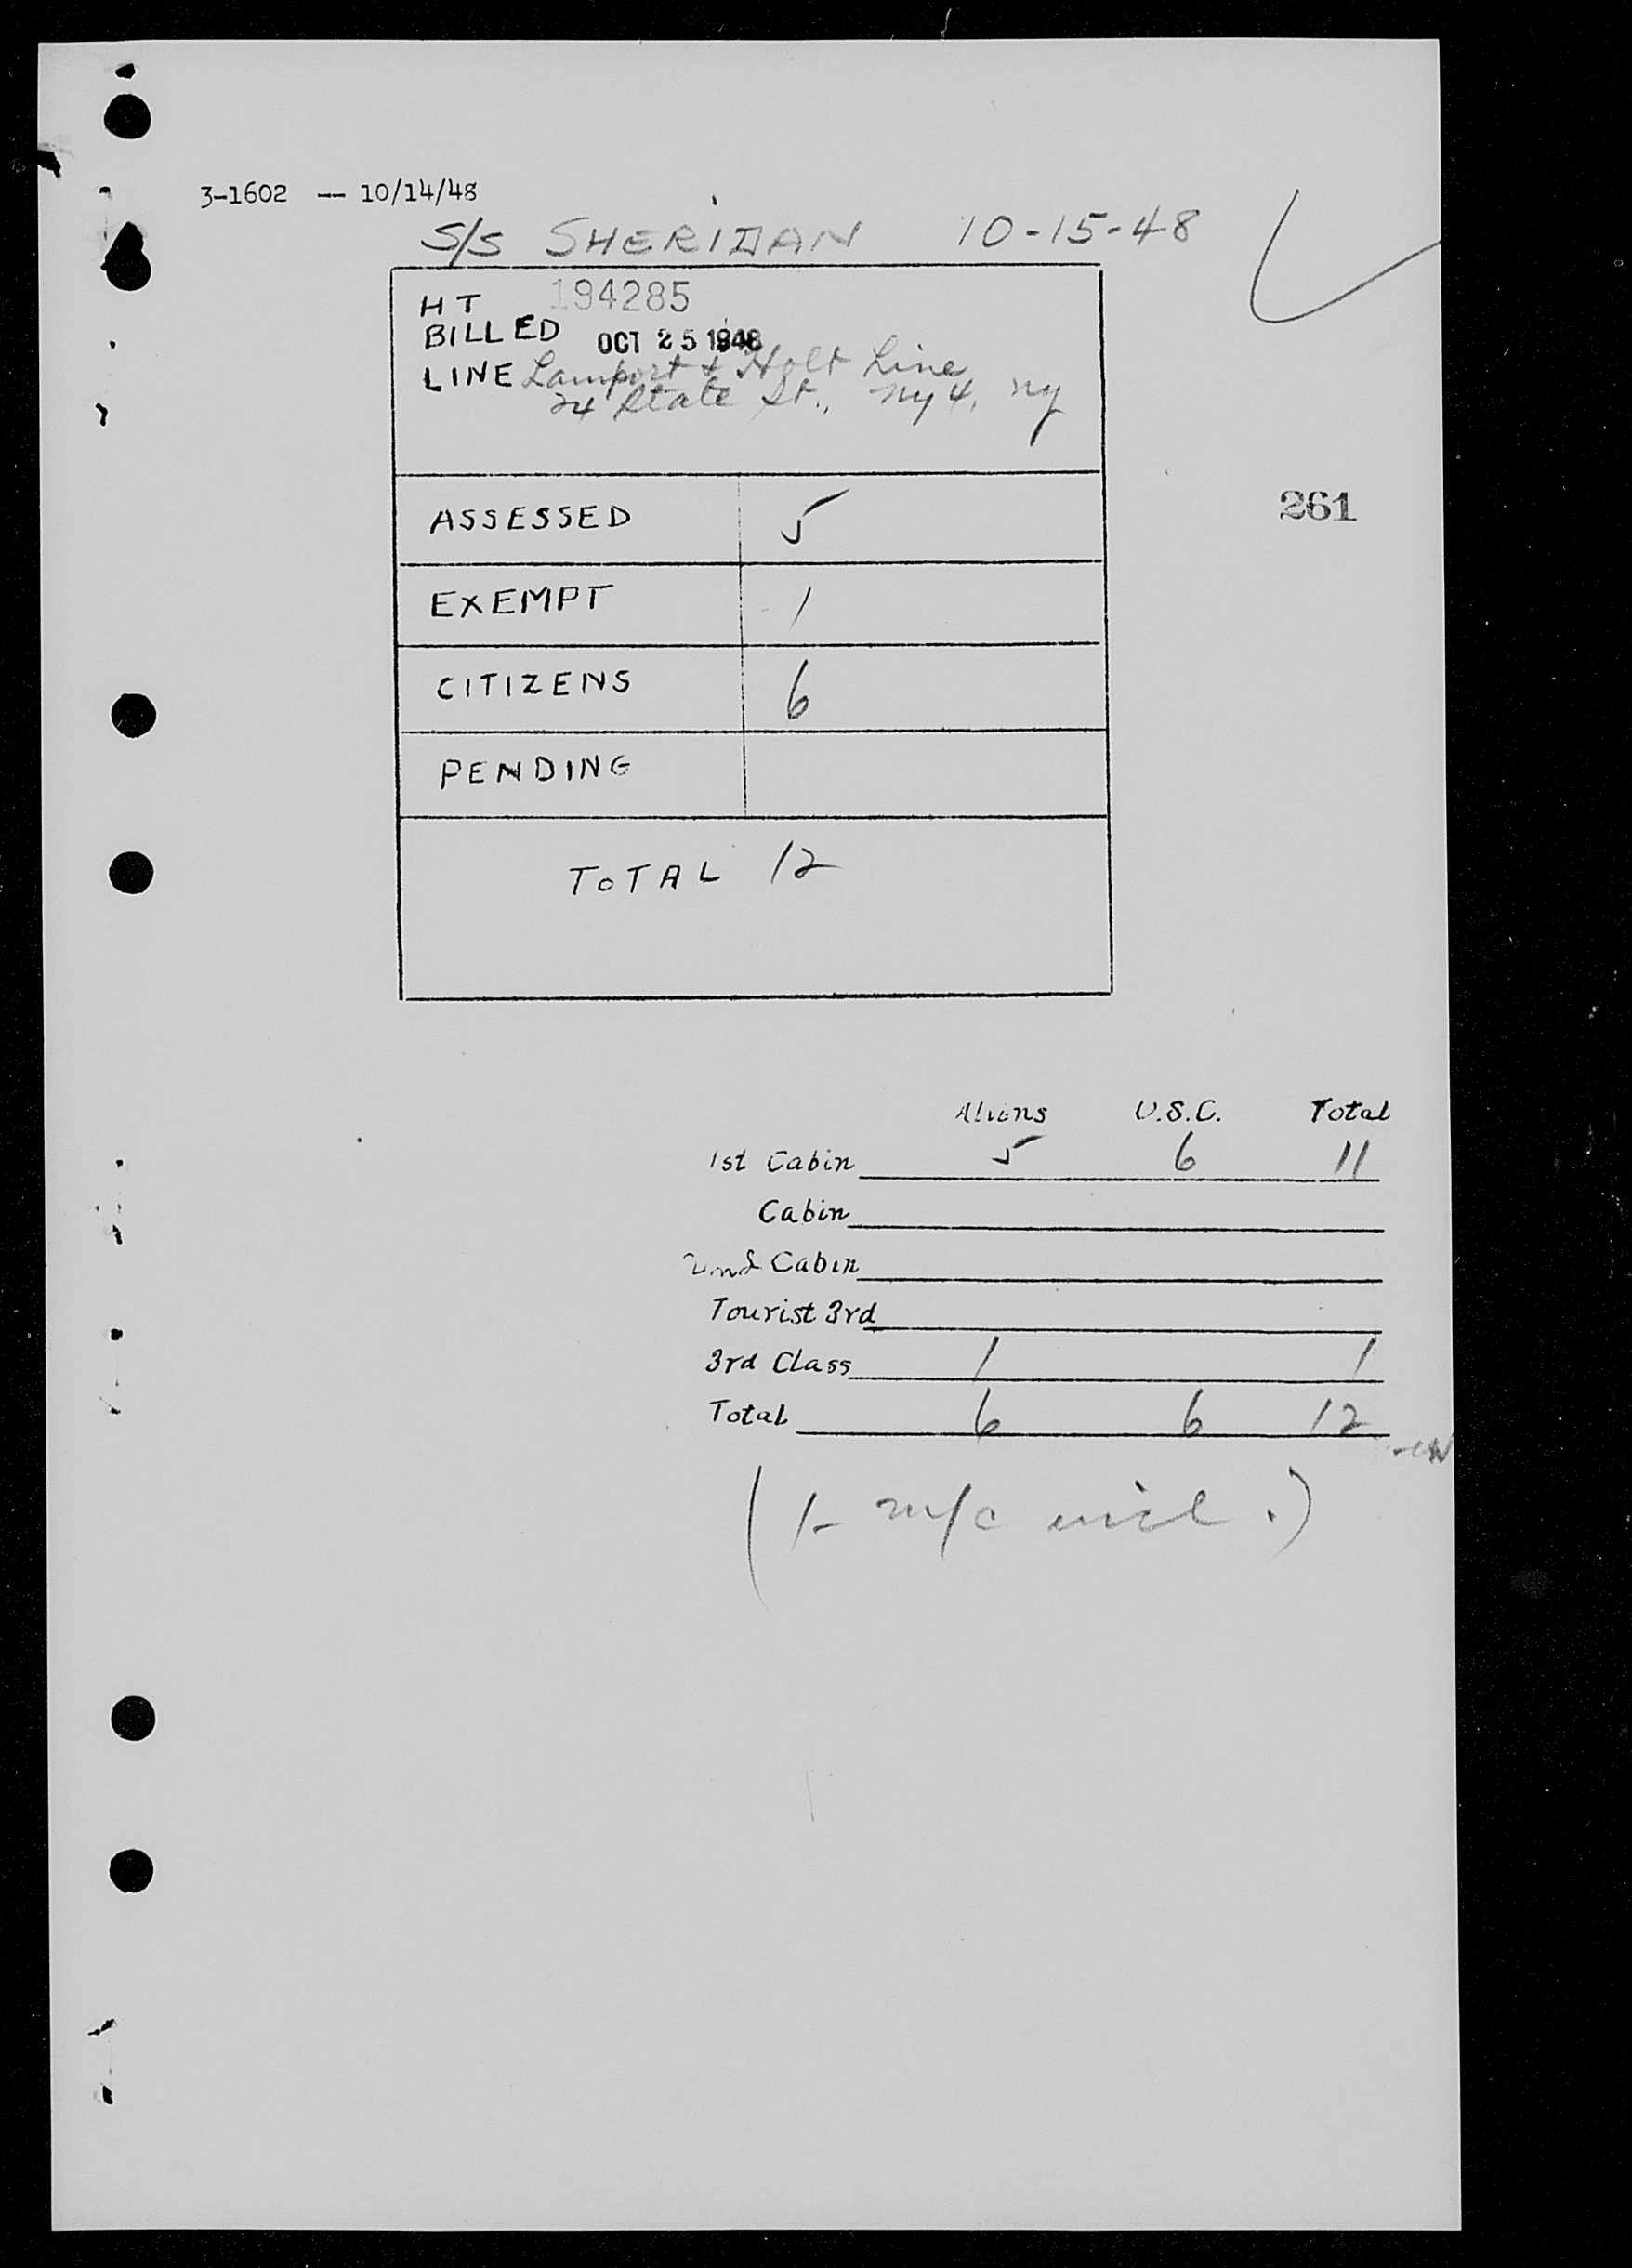 3-1602 -- 10/14/48
S/S SHERIDAN 10-15-48
HT 194285
BILLED OCT 25 1948
LINE Lamport & Holt Line
24 State St., NY 4, NY
261
ASSESSED 5
EXEMPT 1
CITIZENS 6
PENDING
TOTAL 12
Aliens U.S.C. Total
1st Cabin 5 6 11
Cabin
2nd Cabin
Tourist 3rd
3rd Class 1 1
Total 6 6 12
(1- m/c incl.)